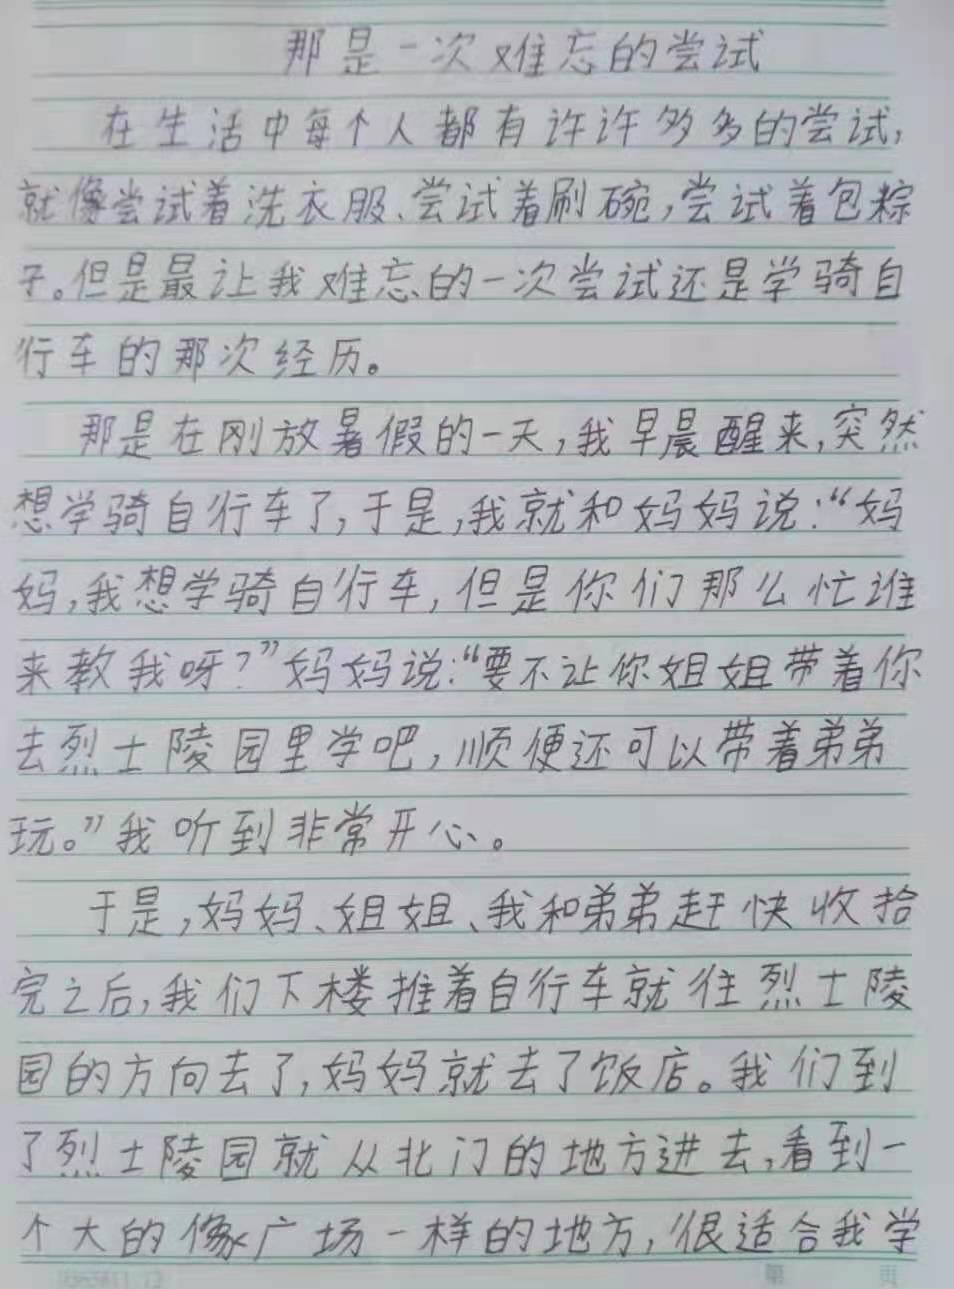 那是一次难忘的尝试
在生活中每个人都有许许多多的尝试,
就像尝试着洗衣服、尝试着刷碗,尝试着包粽
子。但是最让我难忘的一次尝试还是学骑自
行车的那次经历。
那是在刚放暑假的一天,我早晨醒来,突然
想学骑自行车了,于是,我就和妈妈说:“妈
妈,我想学骑自行车,但是你们那么忙谁
来教我呀?”妈妈说:“要不让你姐姐带着你
去烈士陵园里学吧,顺便还可以带着弟弟
玩。”我听到非常开心。
于是,妈妈、姐姐、我和弟弟赶快收拾
完之后,我们下楼推着自行车就往烈士陵
园的方向去了,妈妈就去了饭店。我们到
了烈士陵园就从北门的地方进去,看到一
个大的像广场一样的地方,很适合我学
第 页